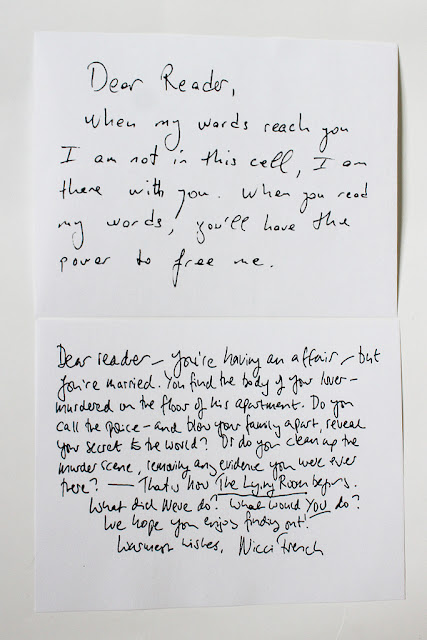 Dear Reader,
When my words reach you
I am not in this cell, I am
there with you. When you read
my words, you'll have the
power to free me.
Dear reader – You're having an affair – but
you're married. You find the body of your lover –
murdered on the floor of his apartment. Do you
call the police – and blow your family apart, reveal
your secret to the world? Or do you clean up the
murder scene, removing any evidence you were ever
there? — That is how The Lying Room begins.
What did Neve do? What would You do?
We hope you enjoy finding out!
Warmest wishes, Nicci French